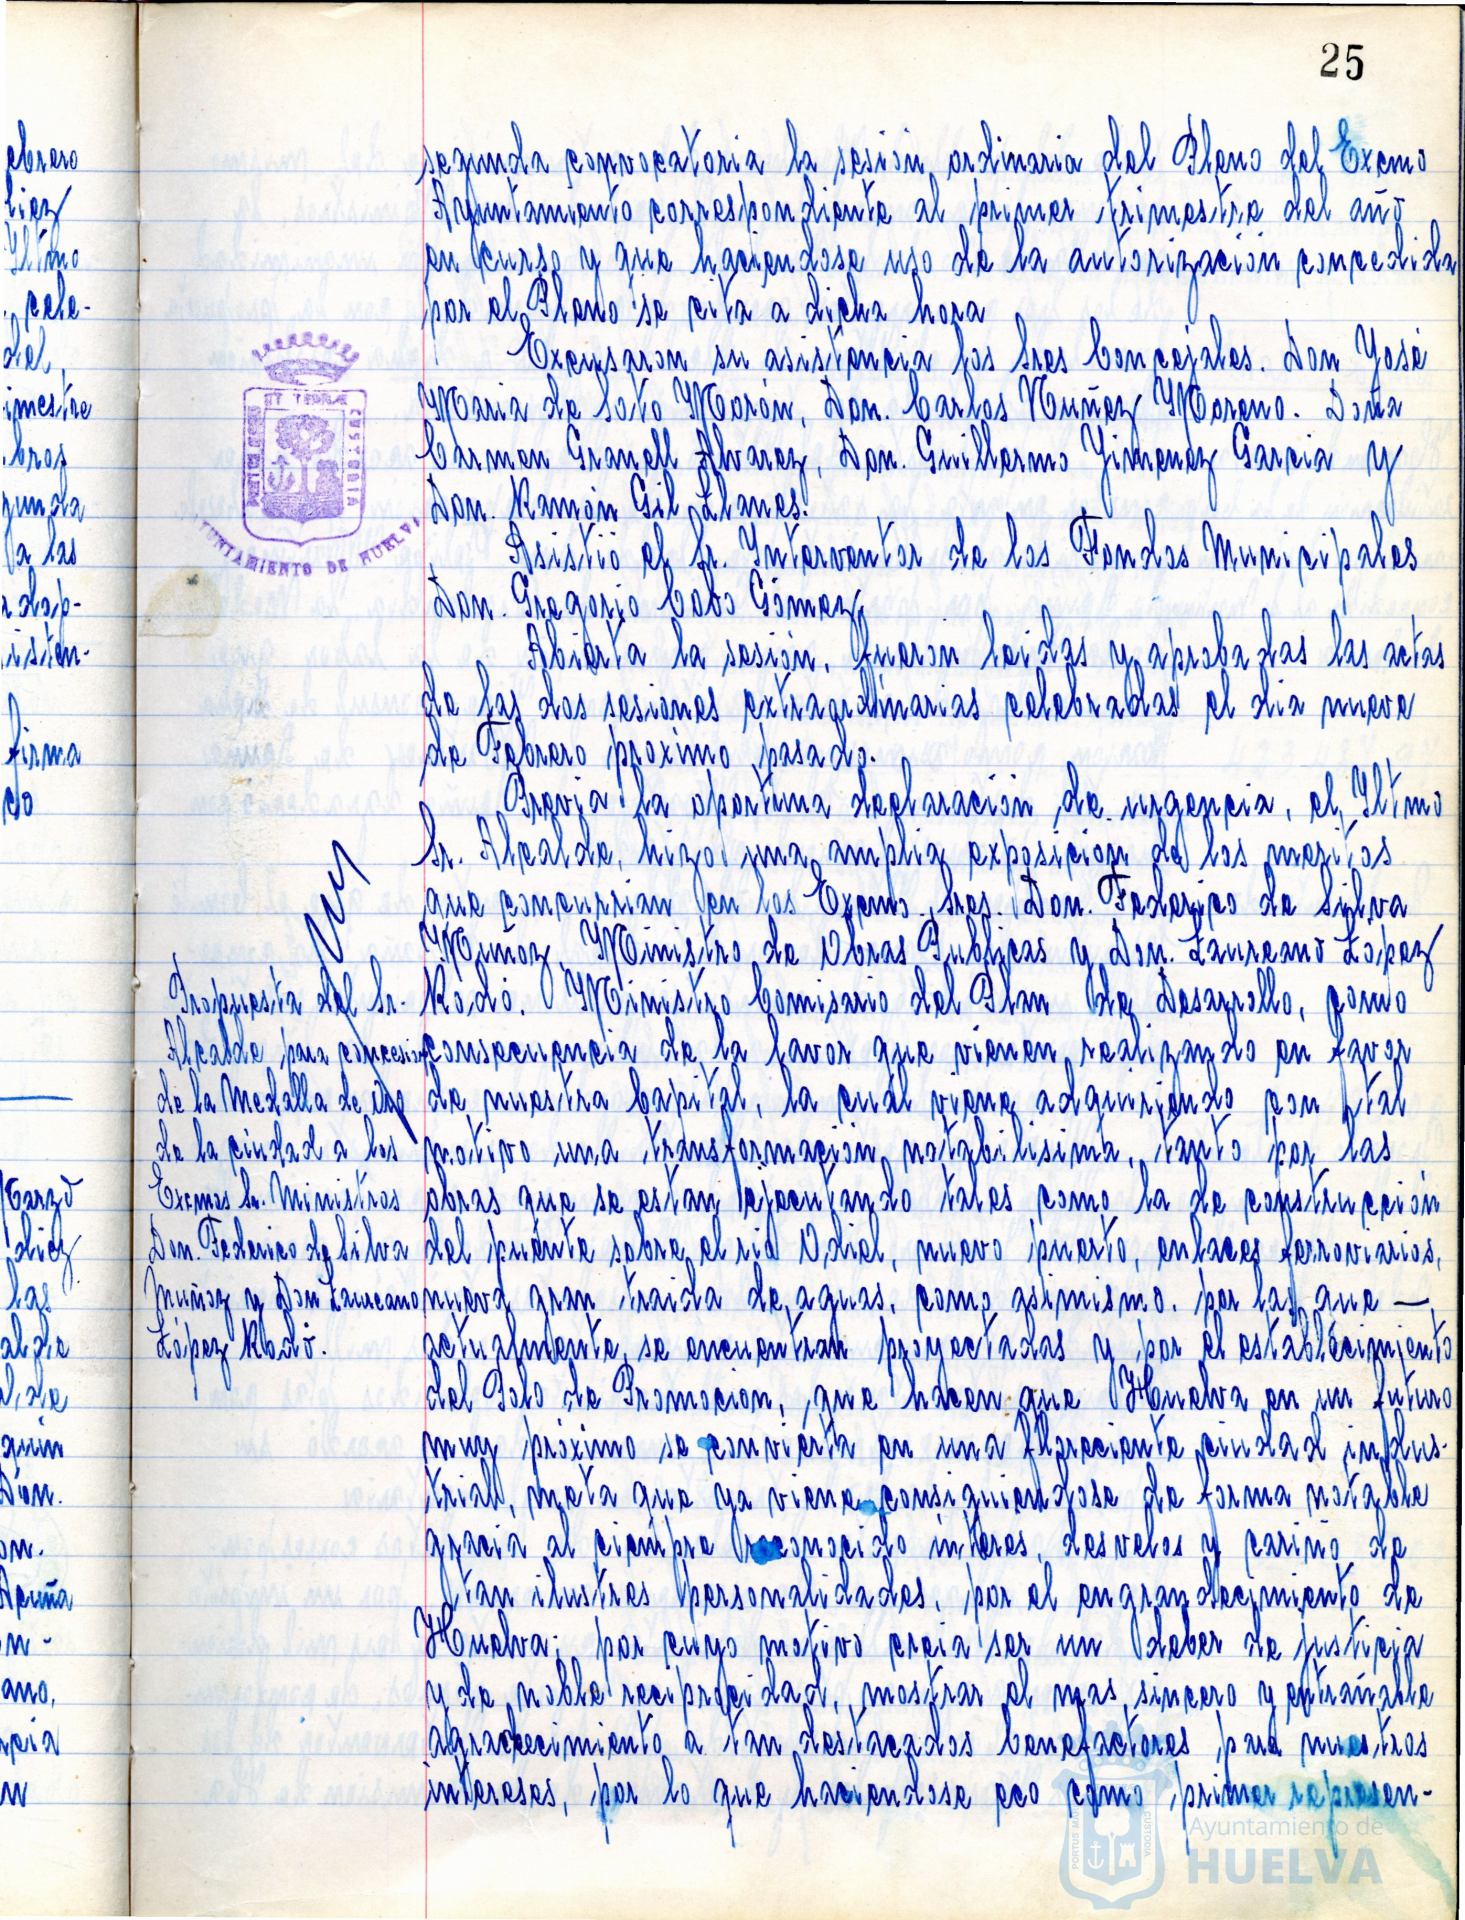 25
segunda convocatoria la sesión ordinaria del Pleno del Excmo
Ayuntamiento correspondiente al primer trimestre del año
en curso y que haciendose uso de la autorización concedida
por el Pleno se cita a dicha hora
Excusaron su asistencia los Sres Concejales. Don José
Maria de Soto Morón, Don. Carlos Nuñez Moreno. Doña
Carmen Granell Alvarez, Don. Guillermo Jimenez Garcia y
Don. Ramón Gil Llanes.
Asistió el Sr. Interventor de los Fondos Municipales
Don. Gregorio Cabo Gómez.
Abierta la sesión, fueron leidas y aprobadas las actas
de las dos sesiones extraordinarias celebradas el dia nueve
de Febrero proximo pasado.
Previa la oportuna declaración de urgencia, el Iltmo
Sr. Alcalde, hizo una amplia exposición de los meritos
que concurrian en los Excmo. Sres. Don. Federico de Silva
Muñoz, Ministro de Obras Publicas y Don. Laureano López
Rodó. Ministro Comisario del Plan de Desarrollo, como
consecuencia de la lavor que vienen realizando en favor
de nuestra Capital, la cual viene adquiriendo con tal
motivo una transformación notabilisima, tanto por las
obras que se estan ejecutando tales como la de construcción
del puente sobre el rio Odiel, nuevo puerto, enlaces ferroviarios,
nueva gran traida de aguas, como asimismo. por las que —
actualmente se encuentran proyectadas y por el establecimiento
del Polo de Promocion, que hacen que Huelva en un futuro
muy próximo se convierta en una floreciente ciudad indus-
trial, meta que ya viene consiguiendose de forma notable
gracia al ciempre reconocido interes, desvelos y cariño de
tan ilustres personalidades, por el engrandecimiento de
Huelva; por cuyo motivo creia ser un deber de justicia
y de noble reciprocidad, mostrar el mas sincero y entrañable
agradecimiento a tan destacados benefactores para nuestros
intereses, por lo que haciendose eco como primer represen-
Propuesta del Sr.
Alcalde para concesion
de la Medalla de Oro
de la ciudad a los
Excmos Sr. Ministros
Don. Federico de Silva
Muñoz y Don Laureano
López Rodó.
ET TERRAE
CUSTODIA
AYUNTAMIENTO DE HUELVA
ebrero
diez
Iltmo
cele-
del
imestre
bros
gunda
a las
adop-
isten-
firma
do
Marzo
diez
las
alde
al de
quin
Don.
on.
Acuña
n-
ano,
ncia
n
PORTUS MARIS
CUSTODIA
Ayuntamiento de
HUELVA